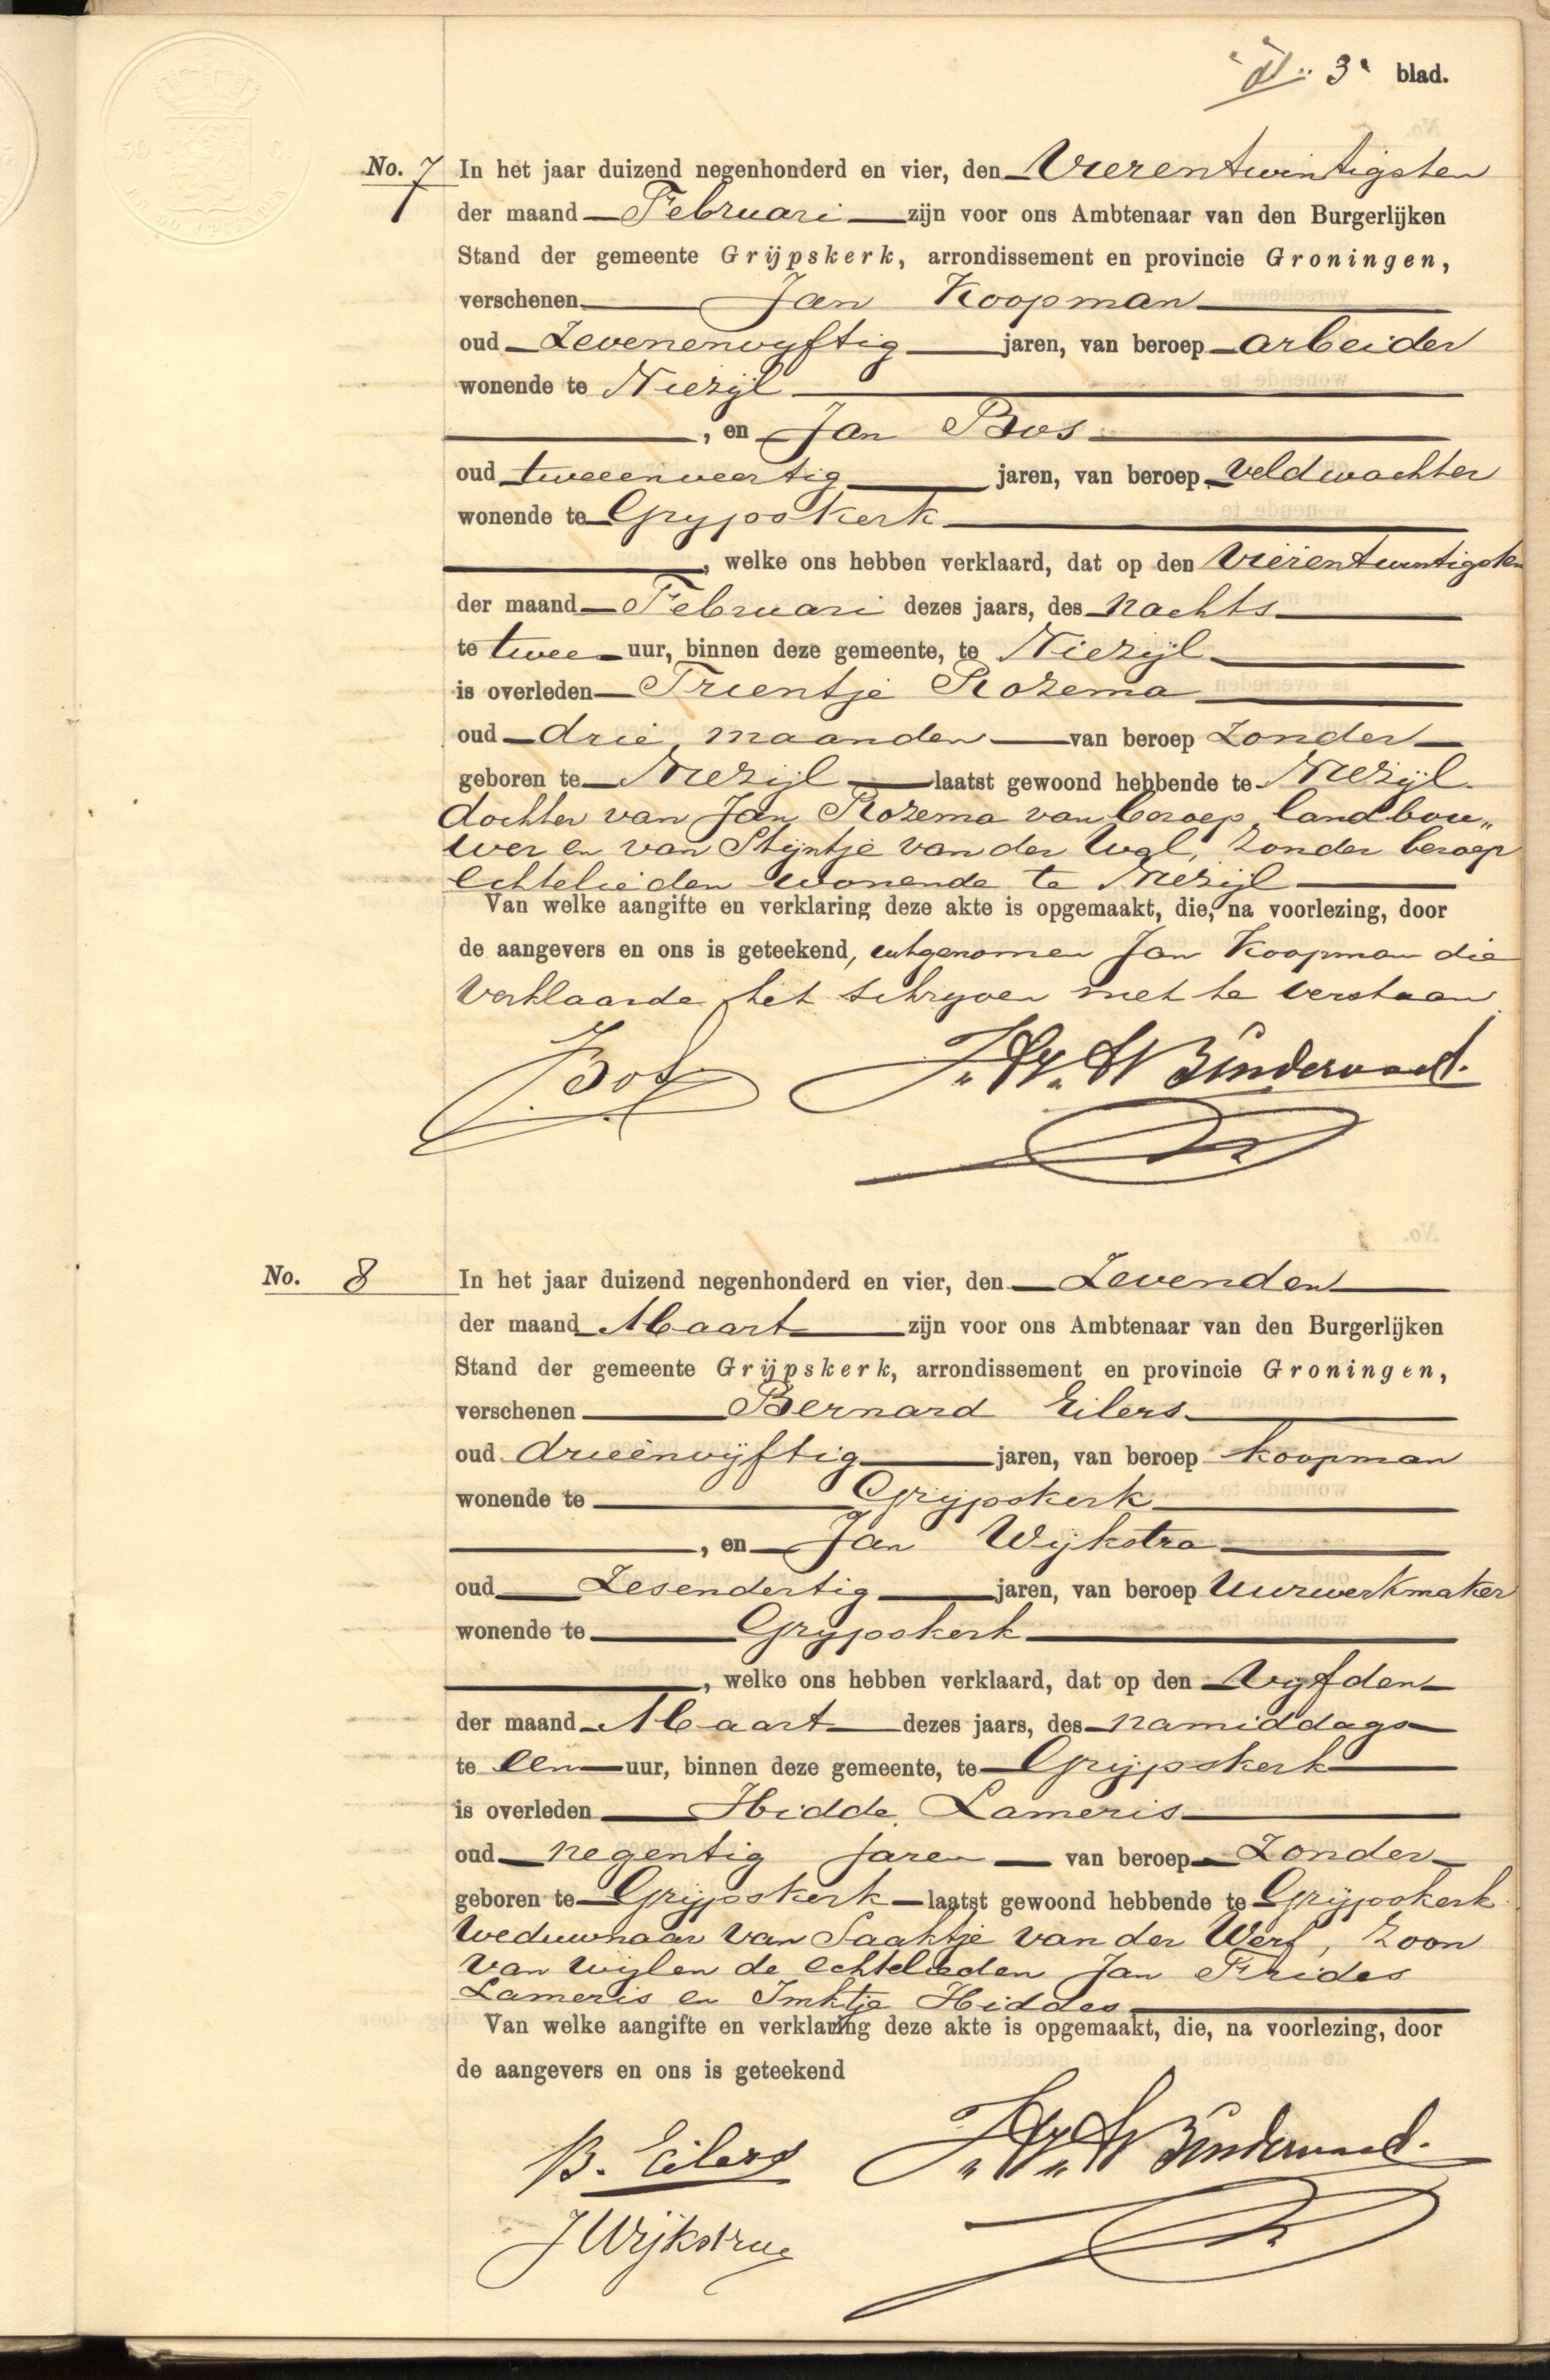 3e blad.
No. 7 In het jaar duizend negenhonderd en vier, den Vierentwintigsten
der maand Februari zijn voor ons Ambtenaar van den Burgerlijken
Stand der gemeente Grijpskerk, arrondissement en provincie Groningen,
verschenen Jan Koopman
oud Zevenenvijftig jaren, van beroep arbeider
wonende te Niezijl
, en Jan Bos
oud tweeenveertig jaren, van beroep veldwachter
wonende te Grijpskerk
, welke ons hebben verklaard, dat op den Vierentwintigsten
der maand Februari dezes jaars, des nachts
te twee uur, binnen deze gemeente, te Niezijl
is overleden Trientje Rozema
oud drie maanden van beroep Zonder
geboren te Niezijl laatst gewoond hebbende te Niezijl
dochter van Jan Rozema van beroep landbou„
wer en van Stijntje van der Wal, zonder beroep
echtelieden wonende te Niezijl
Van welke aangifte en verklaring deze akte is opgemaakt, die, na voorlezing, door
de aangevers en ons is geteekend, uitgenomen Jan Koopman die
verklaarde het schrijven niet te verstaan.
J Bos
No. 8 In het jaar duizend negenhonderd en vier, den Zevenden
der maand Maart zijn voor ons Ambtenaar van den Burgerlijken
Stand der gemeente Grijpskerk, arrondissement en provincie Groningen,
verschenen Bernard Eilers
oud drieënvijftig jaren, van beroep koopman
wonende te Grijpskerk
, en Jan Wijkstra
oud Zesendertig jaren, van beroep Uurwerkmaker
wonende te Grijpskerk
, welke ons hebben verklaard, dat op den Vijfden
der maand Maart dezes jaars, des namiddags
te een uur, binnen deze gemeente, te Grijpskerk
is overleden Hidde Lameris
oud negentig jaren van beroep Zonder
geboren te Grijpskerk laatst gewoond hebbende te Grijpskerk
weduwnaar van Saaktje van der Werf, zoon
van wijlen de echtelieden Jan Frides
Lameris en Imktje Hiddes
Van welke aangifte en verklaring deze akte is opgemaakt, die, na voorlezing, door
de aangevers en ons is geteekend
B. Eilers
J Wijkstra